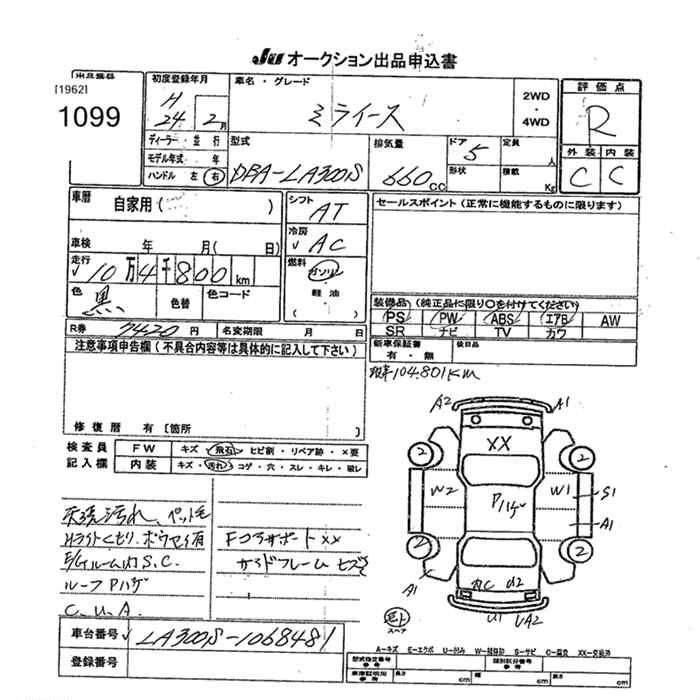 JU オークション出品申込書
出品番号
[1962]
1099
初度登録年月
H
24 2月
ディーラー・並行
モデル年式・年
ハンドル 左 右
車名・グレード
ミライース
2WD
・
4WD
型式
DBA-LA300S
排気量
660cc
ドア
5
形状
定員
人
積載
Kg
評価点
R
外装 内装
C C
車歴
自家用( )
車検 年 月(日)
走行
10万4千800km
色
黒
色替
色コード
シフト
AT
冷房
AC
燃料
ガソリン
軽油
( )
セールスポイント(正常に機能するものに限ります)
装備品(純正品に限り○を付けてください)
PS PW ABS エアB AW
SR ナビ TV カワ
新車保証書
有・無
後日品
R券 7420円
名変期限 月 日
104.801KM
注意事項申告欄(不具合内容等は具体的に記入して下さい)
修復歴 有[箇所 ]
検査員
記入欄
FW キズ・飛石・ヒビ割・リペア跡・×要
内装 キズ・汚れ・コゲ・穴・スレ・キレ・破レ
汚れ、ペット毛
Hライトくもり、ボウサイ有
ルーム内S.C.
ルーフPハゲ
C.U.A.
Fコアサポートxx
サイドフレーム
A2 A1
XX
2 2
W2 Pハゲ W1 S1
A1
2 2
A1
AC U2
U1 UA2
スペア
A-キズ E-エクボ U-凹み W-補修跡 S-サビ C-腐食 XX-交換済
車台番号 LA300S-1068481
登録番号
型式指定番号
参考
類別区分番号
参考
車庫証明用
参考
長さ cm 幅 cm 高さ cm